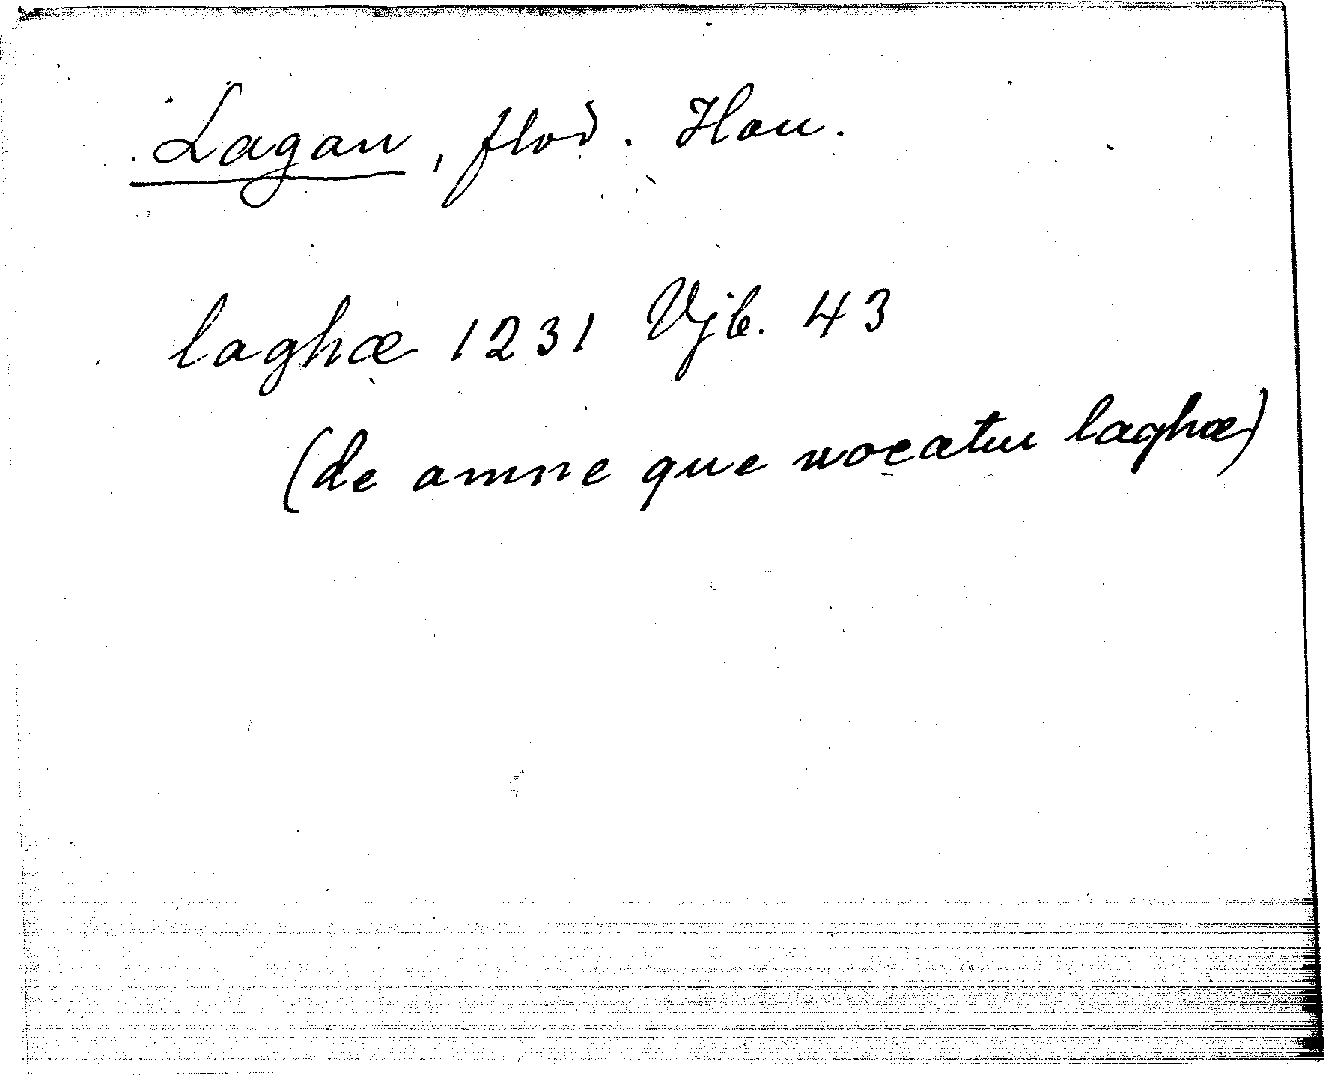 Lagan, flod. Hau.
laghæ 1231 Vjb. 43
(de amne que uocatur laghæ)